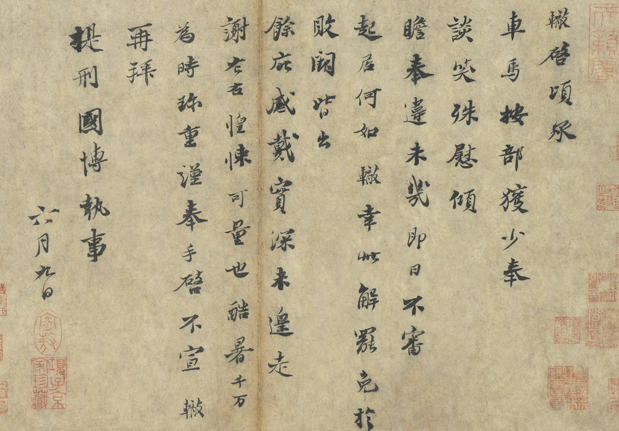 轍啓頃承
車馬按部獲少奉
談笑殊慰傾
瞻奉違未幾即日不審
起居何如轍幸此解罷免於
敗闕皆出
餘庇感戴實深未遑走
謝左右惶悚可量也酷暑千万
為時珍重謹奉手啓不宣轍
再拜
提刑國博執事
六月九日